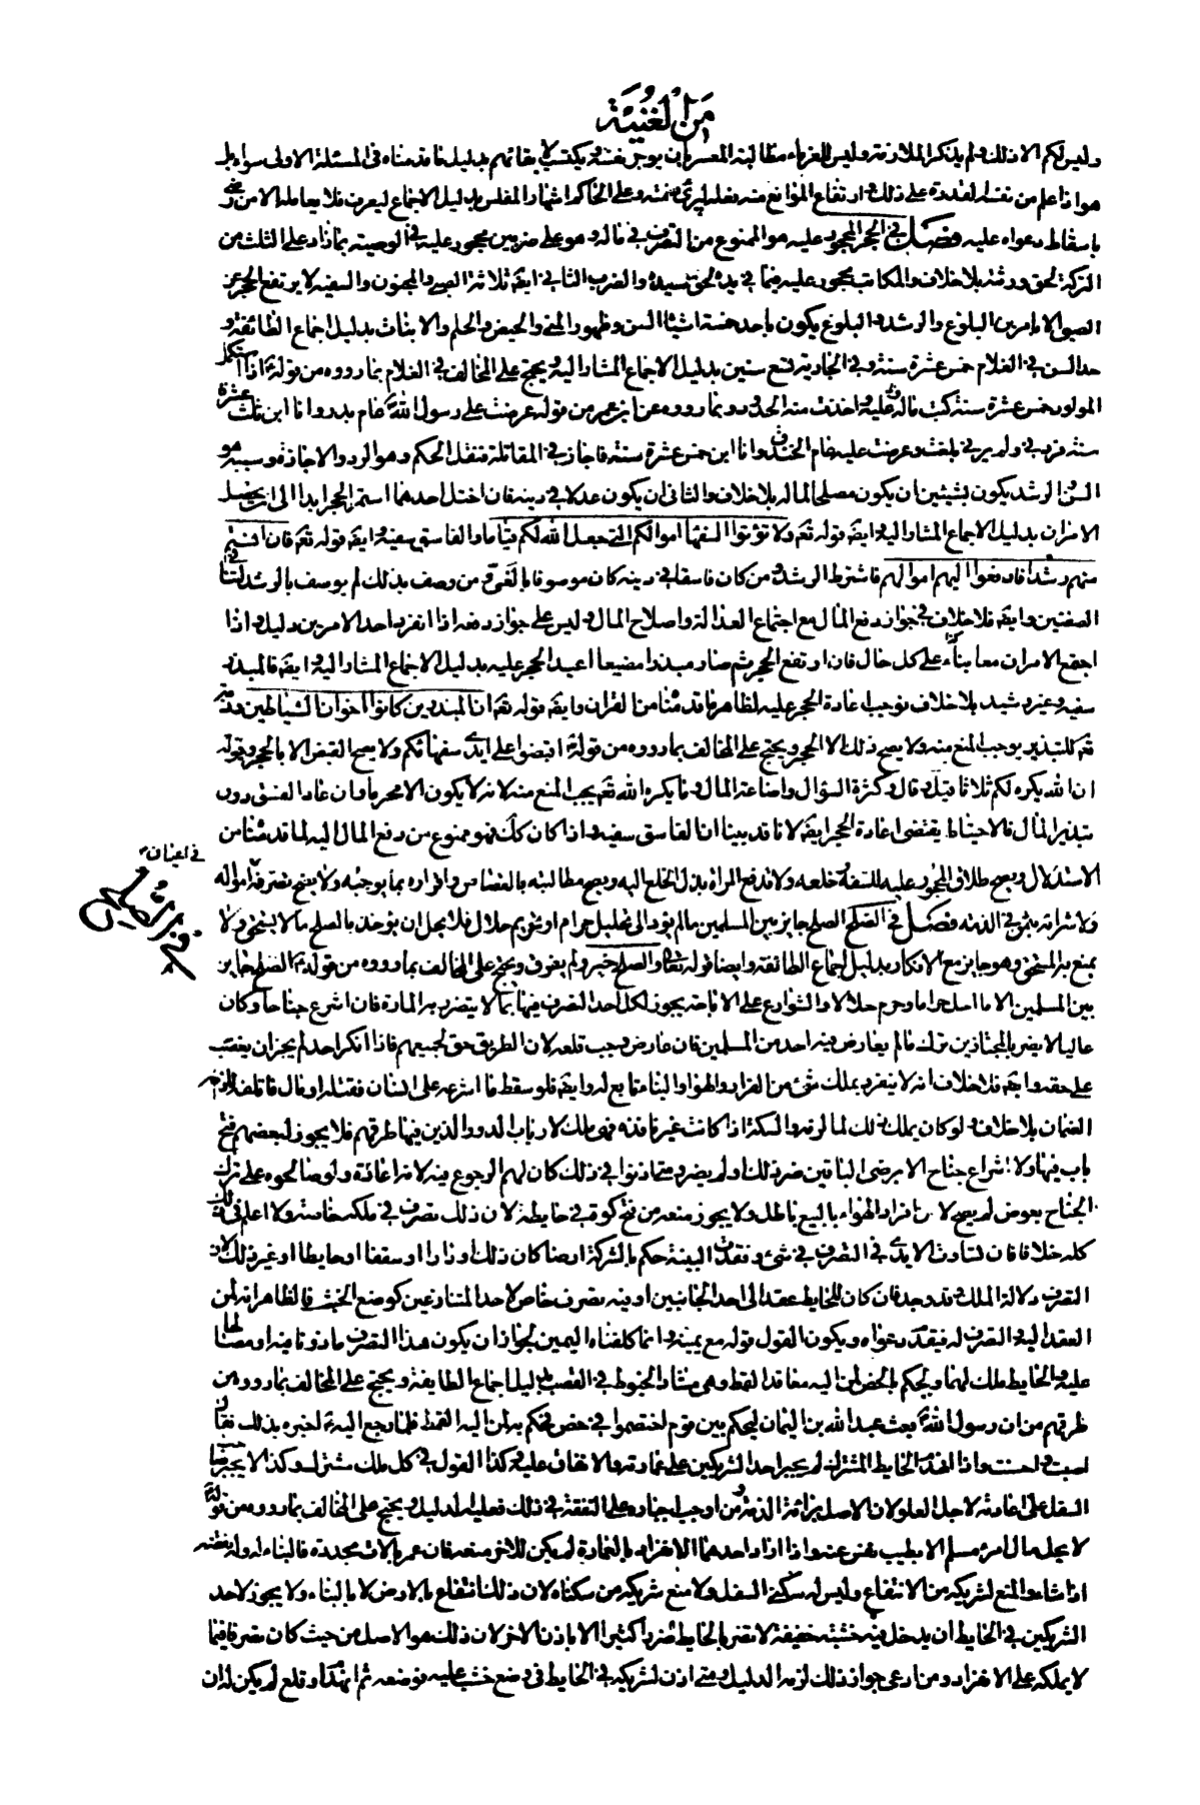 من الغنية
وليس لكم الا ذلك ولم يذكر الملازمة وليس للغرماء مطالبة المعسر بان يوجر نفسه ويكتسب لايفائهم بدليل ما قدمناه في المسئلة الاولى سواء بل
هو اذا علم من نفسه القدرة على ذلك وارتفاع الموانع منه فعله ليبرئ ذمته وعلى الحاكم اشهار المفلس بدليل الاجماع ليعرف فلا يعامله الا من رضي
باسقاط دعواه عليه فصل في الحجر المحجور عليه هو الممنوع من التصرف في ماله وهو على ضربين محجور عليه في الوصية بما زاد على الثلث من
التركة لحق ورثته بلا خلاف والمكاتب محجور عليه فيما في يده لحق سيده والضرب الثاني ايضا ثلاثة الصبي والمجنون والسفيه لا يرتفع الحجر عن
الصبي الا بامرين البلوغ والرشد والبلوغ يكون باحد خمسة اشياء السن وظهور المني والحيض والحلم والانبات بدليل اجماع الطائفة و
حد السن في الغلام خمس عشرة سنة وفي الجارية تسع سنين بدليل الاجماع المشار اليه ويحتج على المخالف في الغلام بما رووه من قوله اذا استكمل
المولود خمس عشرة سنة كتب ماله وما عليه واخذت منه الحدود وبما رووه عن ابن عمر من قوله عرضت على رسول الله عام بدر وانا ابن ثلث عشرة
سنة فردني ولم يرني بلغت وعرضت عليه عام الخندق وانا ابن خمس عشرة سنة فاجازني في المقاتلة فنقل الحكم وهو الرد والاجازة وسببه هو
السن والرشد يكون بشيئين ان يكون مصلحا لماله بلا خلاف والثاني ان يكون عدلا في دينه فان اختل احدهما استمر الحجر ابدا الى ان يحصل
الامران بدليل الاجماع المشار اليه وايضا قوله تعالى ولا تؤتوا السفهاء اموالكم التي جعل الله لكم قياما والفاسق سفيه وايضا قوله تعالى فان انستم
منهم رشدا فادفعوا اليهم اموالهم فاشترط الرشد ومن كان فاسقا في دينه كان موصوفا بالغي ومن وصف بذلك لم يوصف بالرشد لتنافي
الصفتين وايضا فلا خلاف في جواز دفع المال مع اجتماع العدالة واصلاح المال وليس على جواز دفعه اذا انفرد احد الامرين دليل واذا
اجتمع الامران معا بناء على كل حال فان ارتفع الحجر ثم صار مبذرا مضيعا اعيد الحجر عليه بدليل الاجماع المشار اليه وايضا فالمبذر
سفيه وغير رشيد بلا خلاف فوجب اعادة الحجر عليه لظاهر ما قدمناه من القران وايضا قوله تعالى ان المبذرين كانوا اخوان الشياطين وذمه
تعالى للتبذير يوجب المنع منه ولا يصح ذلك الا بالحجر ويحتج على المخالف بما رووه من قوله اقبضوا على ايدي سفهائكم ولا يصح القبض الا بالحجر وبقوله
ان الله يكره لكم ثلاثا قيل وقال وكثرة السؤال واضاعة المال وما يكره الله تعالى يجب المنع منه لانه لا يكون الا محرما وان عاد الفسق دون
تبذير المال فالاحتياط يقتضي اعادة الحجر ايضا لانا قد بينا ان الفاسق سفيه واذا كان كك فهو ممنوع من دفع المال اليه لما قدمناه من
الاستدلال ويصح طلاق المحجور عليه للسفه وخلعه ولا تدفع المراة بذل الخلع اليه ويصح مطالبته بالقصاص واقراره بما يوجبه ولا يصح تصرفه في امواله
في اعيان
ولا شرائه بثمن في الذمة فصل في الصلح الصلح جايز بين المسلمين ما لم يؤد الى تحليل حرام او تحريم حلال فلا يحل ان يؤخذ بالصلح ما لا يستحق ولا
في الصلح
يمنع به المستحق وهو جايز مع الانكار بدليل اجماع الطائفة وايضا قوله تعالى والصلح خير ولم يفرق ويحتج على المخالف بما رووه من قوله الصلح جايز
بين المسلمين الا ما احل حراما او حرم حلالا والشوارع على الاباحة يجوز لكل احد التصرف فيها بما لا يتضرر به المارة فان اشرع جناحا وكان
عاليا لا يضر بالمجتازين ترك ما لم يعارض فيه احد من المسلمين فان عارض وجب قلعه لان الطريق حق لجميعهم فاذا انكر احد لم يجز ان يغصب
على حقه وايضا فلا خلاف انه لا ينفرد بملك شئ من القرار والهواء والبناء تابع له وايضا فلو سقط ما اشرعه على انسان فقتله او مال فاتلفه لزمه
الضمان بلا خلاف ولو كان يملك ذلك لما لزمه والسكة اذا كانت غير نافذة فهي ملك لارباب الدور الذين فيها طرقهم فلا يجوز لبعضهم فتح
باب فيها ولا اشراع جناح الا برضى الباقين ضر ذلك او لم يضر ومتى اذنوا في ذلك كان لهم الرجوع فيه لانه اعارة ولو صالحوه على ترك
الجناح بعوض لم يصح لان افراد الهواء بالبيع باطل ولا يجوز منعه من فتح كوة في حايطه لان ذلك تصرف في ملكه خاصة ولا اعلم في ذلك
كله خلافا فان تساوت الايدي في التصرف في شئ وفقدت البينة حكم بالشركة ارضا كان ذلك او دارا او سقفا او حايطا او غير ذلك لان
التصرف دلالة الملك وقد وجد فان كان للحايط عقد الى احد الجانبين او فيه تصرف خاص لاحد المتنازعين كوضع الخشب فالظاهر انه لمن
العقد اليه والتصرف له فيقدم دعواه ويكون القول قوله مع يمينه وانما كلفناه اليمين لجواز ان يكون هذا التصرف ماذونا فيه او مصالحا
عليه والحايط ملك لهما ويحكم بالخص لمن اليه معاقد القمط وهي مشاد الخيوط في القصب بدليل اجماع الطايفة ويحتج على المخالف بما رووه من
طرقهم من ان رسول الله بعث عبد الله بن اليمان ليحكم بين قوم اختصموا في خص فحكم به لمن اليه القمط فلما رجع اليه اخبره بذلك فقال
اصبت واحسنت واذا انهدم الحايط المشترك لم يجبر احد الشريكين على عمارته والانفاق عليه وكذا القول في كل ملك مشترك وكذا لا يجبر صاحب
السفل على اعادته لاجل العلو لان الاصل براءة الذمة ومن اوجب اجباره على النفقة في ذلك فعليه الدليل ويحتج على المخالف بما رووه من قوله
لا يحل مال امرئ مسلم الا بطيب نفس عنه واذا اراد احدهما الانفراد بالعمارة لم يكن للاخر منعه فان عمر بالات مجددة فالبناء له وله نقضه
اذا شاء والمنع لشريكه من الانتفاع وليس له سكنى السفل ولا منع شريكه من سكناه لان ذلك انتفاع بالارض لا بالبناء ولا يجوز لاحد
الشريكين في الحايط ان يدخل فيه خشبة خفيفة لا تضر بالحايط ضررا كثيرا الا باذن الاخر لان ذلك هو الاصل من حيث كان تصرفا فيما
لا يملكه على الانفراد ومن ادعى جواز ذلك لزمه الدليل ومتى اذن لشريكه في الحايط في وضع خشب عليه فوضعه ثم انهدم او قلع لم يكن له ان